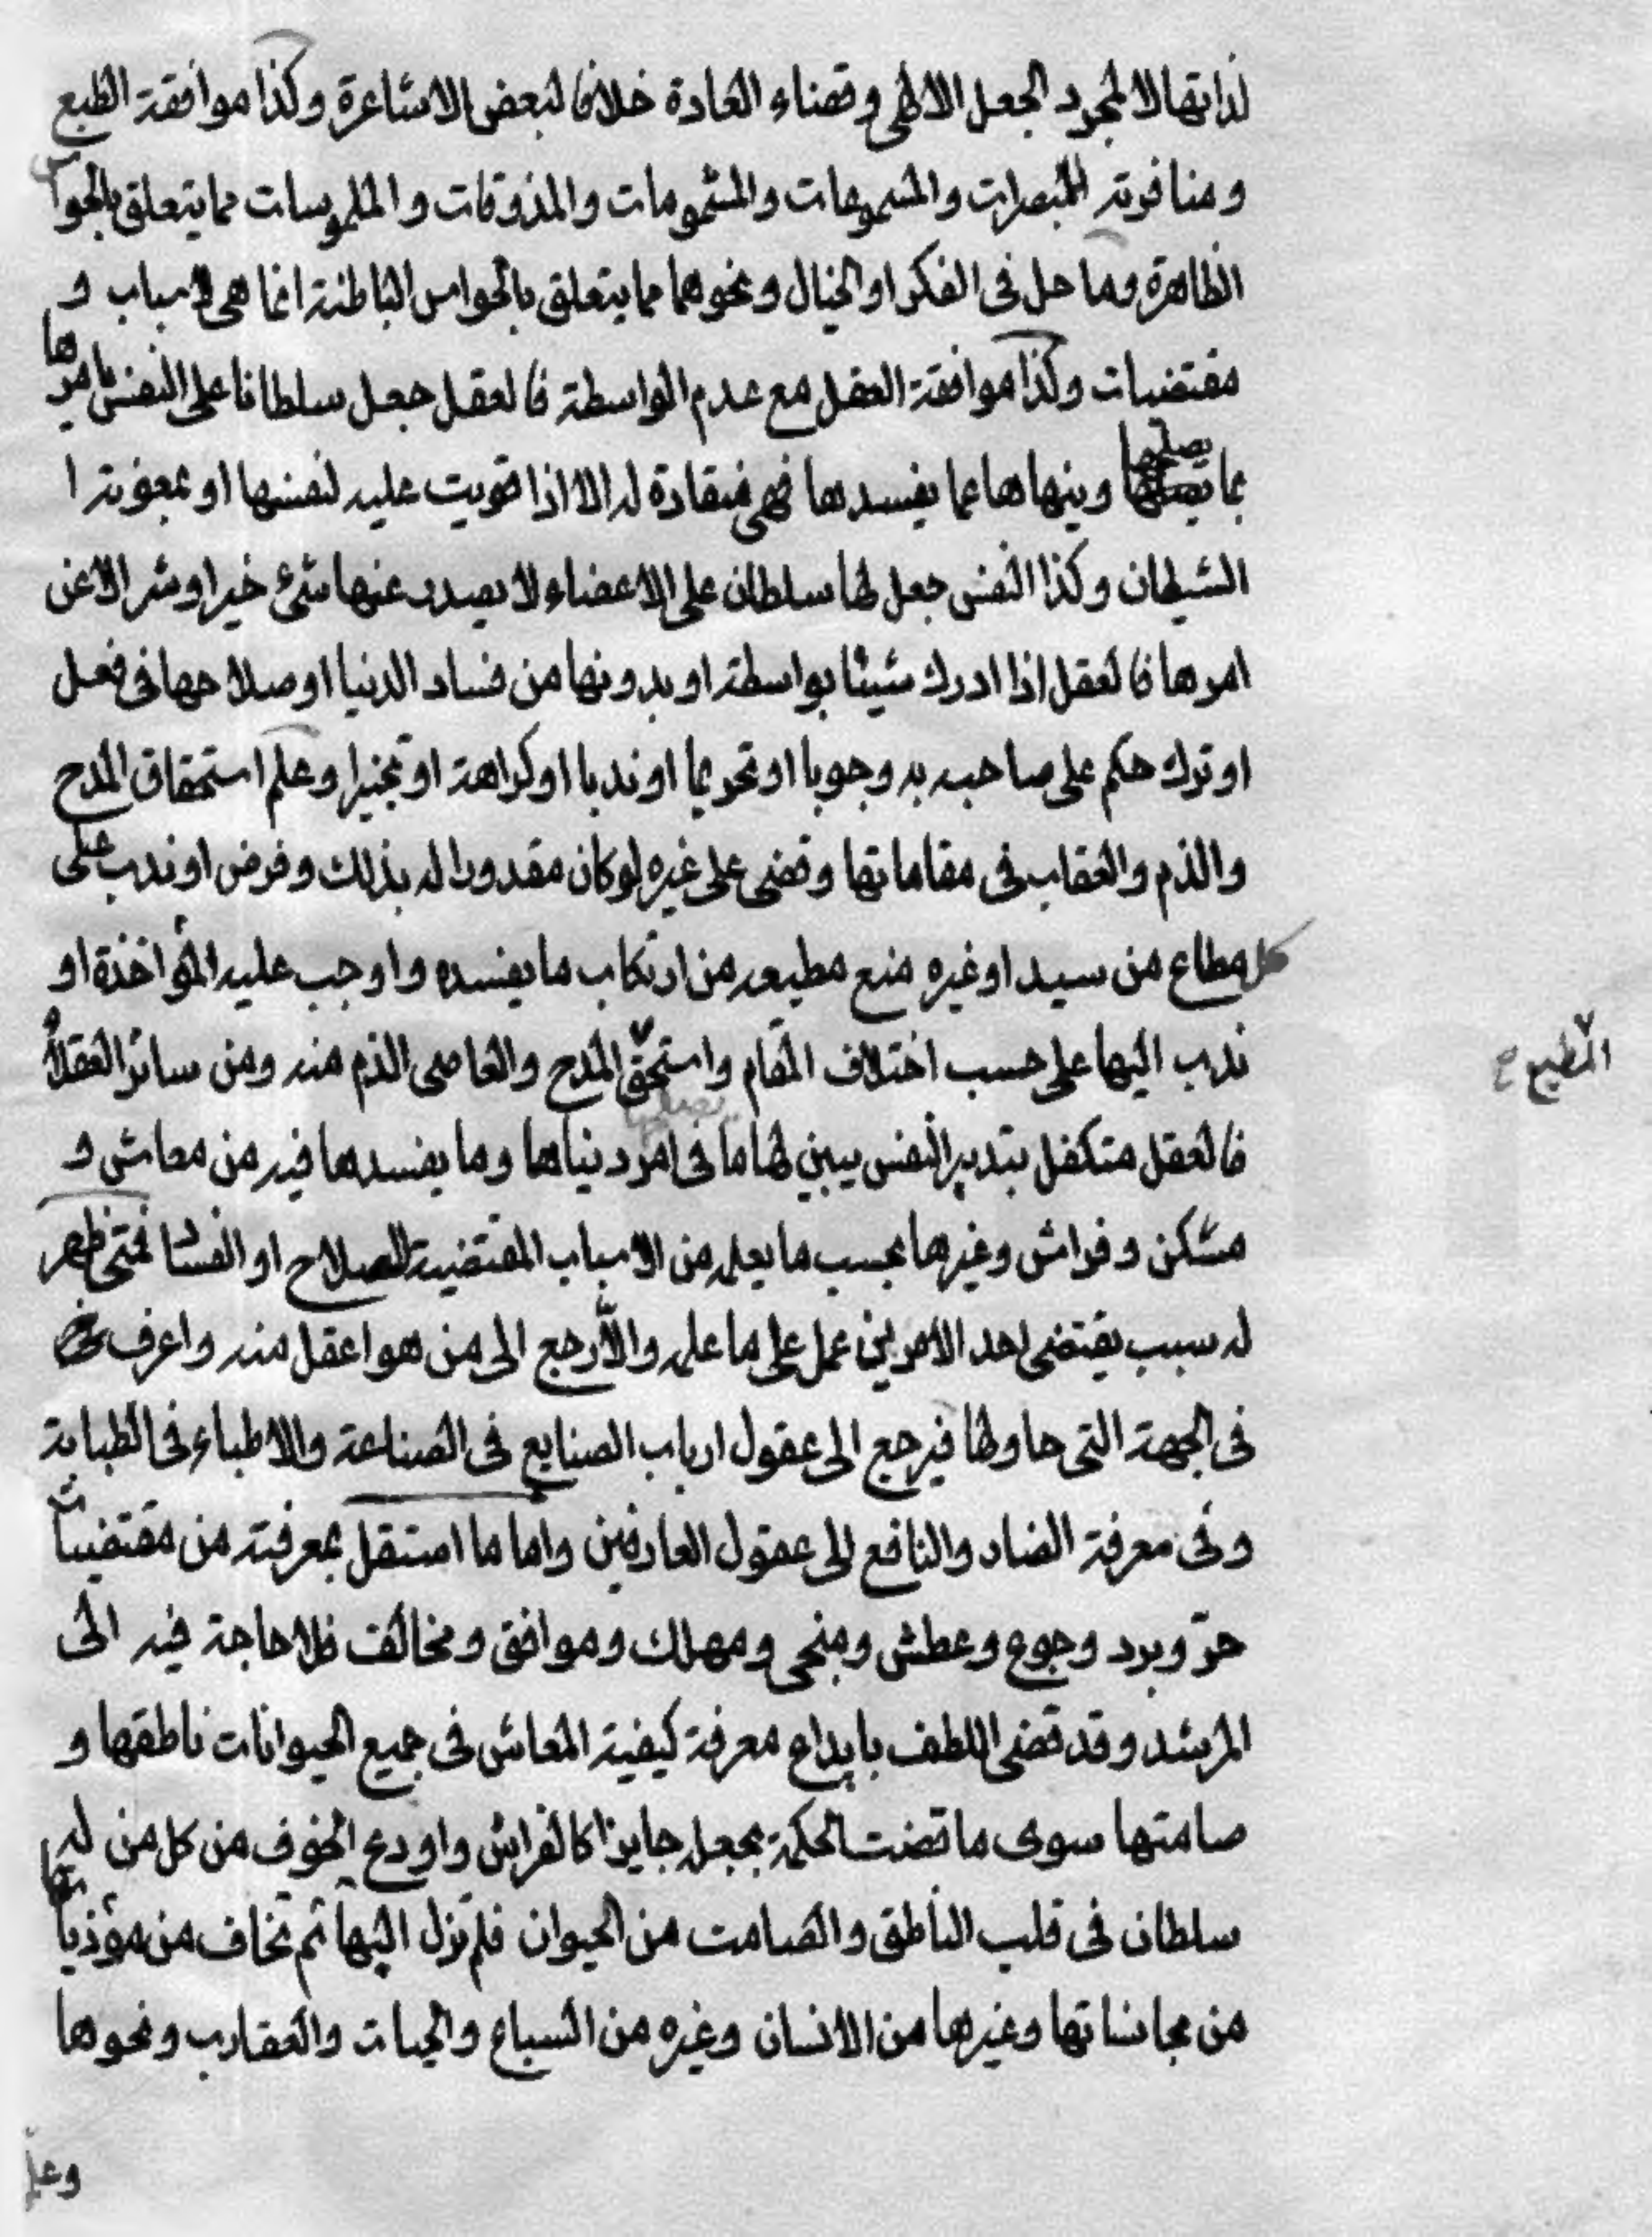 لذاتها لا لمجرد الجعل الالهى وقضاء العادة خلافا لبعض الاشاعرة وكذا موافقة الطبع
ومنافرته للمبصرات والمسموعات والمشمومات والمذوقات والملموسات مما يتعلق بالحواس
الظاهرة وما حل فى الفكر او الخيال ونحوهما مما يتعلق بالحواس الباطنة انما هى لاسباب و
مقتضيات وكذا موافقة العقل مع عدم الواسطة فالعقل جعل سلطانا على النفس يامرها
بما يصلحها وينهاها عما يفسدها فهى منقادة له الا اذا قويت عليه لنفسها او بمعونة ا
الشيطان وكذا النفس جعل لها سلطان على الاعضاء لا يصدر عنها شئ خير او شر الا عن
امرها فالعقل اذا ادرك شيئا بواسطة او بدونها من فساد الدنيا او صلاحها فى فعل
او ترك حكم على صاحبه به وجوبا او تحريما او ندبا او كراهة او تخييرا وعلم استحقاق المدح
والذم والعقاب فى مقاماتها وقضى على غيره لو كان مقدورا له بذلك وفرض او ندب على
كل مطاع من سيد او غيره منع مطيعه من ارتكاب ما يفسده واوجب عليه المؤاخذة او
ندب اليها على حسب اختلاف المقام واستحق المدح والعاصى الذم منه ومن سائر العقلاء
المطيع ح
فالعقل متكفل بتدبير النفس يبين لها ما يصلحها فى امر دنياها وما يفسدها فيه من معاش و
مسكن وفراش وغيرها بحسب ما يعلم من الاسباب المقتضية للصلاح او الفساد فمتى ظهر
له سبب يقتضى احد الامرين عمل على ما علم والا رجع الى من هو اعقل منه واعرف
فى الجهة التى حاولها فيرجع الى عقول ارباب الصنايع فى الصناعة والاطباء فى الطبابة
وفى معرفة الضار والنافع الى عقول العارفين واما ما استقل بمعرفته من مقتضيات
حر وبرد وجوع وعطش ومنجى ومهلك وموافق ومخالف فلا حاجة فيه الى
المرشد وقد قضى اللطف بايداع معرفة كيفية المعاش فى جميع الحيوانات ناطقها و
صامتها سوى ما قضت الحكمة بجعله جايزا كالفراش واودع الخوف من كل من له
سلطان فى قلب الناطق والصامت من الحيوان فلم تزل البهائم تخاف من مؤذياتها
من مجانساتها وغيرها من الانسان وغيره من السباع والحيات والعقارب ونحوها
وعلم